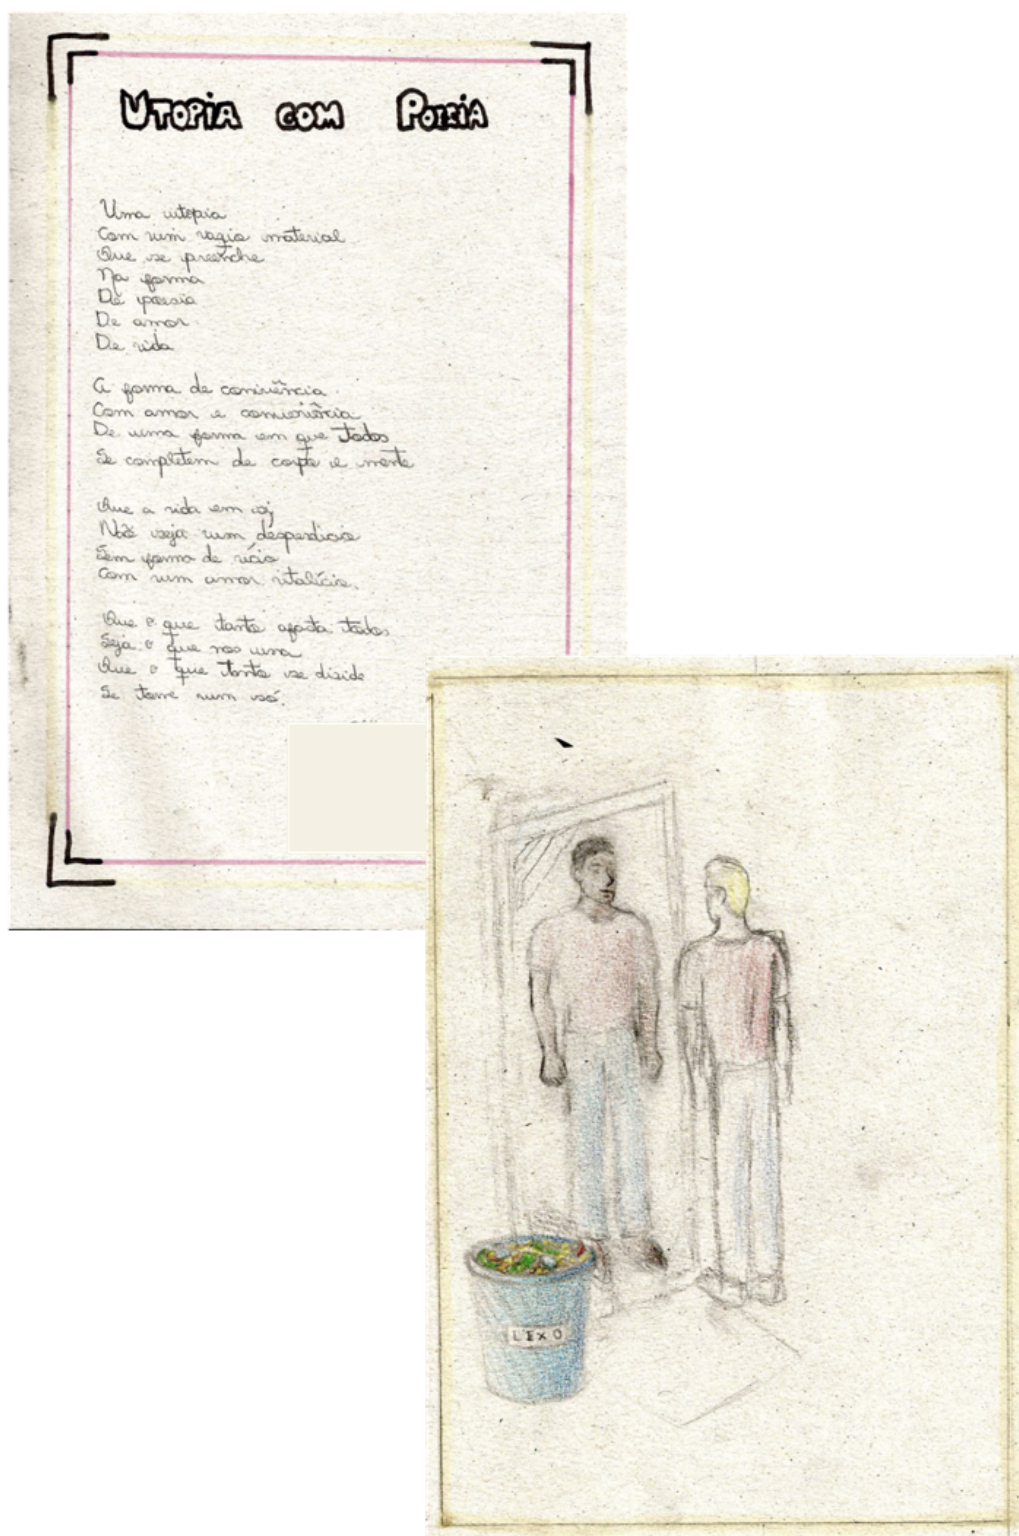 UTOPIA COM POESIA
Uma utopia
Com um vazio material
Que se preenche
Na forma
De poesia
De amor
De vida
A forma de convivência
Com amor e conveniência
De uma forma em que todos
Se completem de corpo e mente
Que a vida em si
Não seja um desperdício
Sem forma de vício
Com um amor vitalício.
Que o que tanto afasta todos
Seja o que nos una
Que o que tanto se divide
Se torne um só.
LEXO